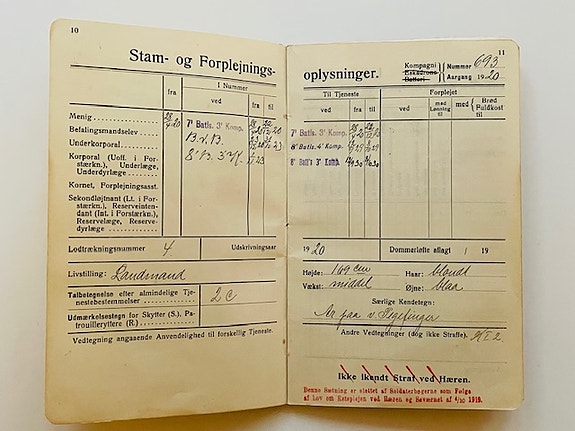 10
Stam- og Forplejnings-
fra
I Nummer
ved
fra
til
Menig
7' Batls. 3' Komp.
Befalingsmandselev
B.v.B.
Underkorporal
Korporal (Uoff. i For-
stærkn.), Underlæge,
Underdyrlæge
Kornet, Forplejningsasst.
Sekondløjtnant (Lt. i For-
stærkn.), Reserveinten-
dant (Int. i Forstærkn.),
Reservelæge, Reserve-
dyrlæge
Lodtrækningsnummer 4
Udskrivningsaar
Livstilling: Landmand
Talbetegnelse efter almindelige Tje-
nestebestemmelser
2 C
Udmærkelsestegn for Skytter (S.), Pa-
trouilleryttere (R.)
Vedtegning angaaende Anvendelighed til forskellig Tjeneste.
11
oplysninger.
Kompagni
Eskadrons
Batteri
Nummer 693
Aargang 1920
Til Tjeneste
Forplejet
ved
fra
til
med Løning til
med
Brød
Fuldkost
til
7' Batls. 3' Komp.
8' Batls. 4' Komp.
8' Batl's 3' Komp.
1920
Dommerløfte aflagt / 19
Højde: 169 cm
Haar: blondt
Vækst: middel
Øjne: blaa
Særlige Kendetegn:
Ar paa v. Pegefinger
Andre Vedtegninger (dog ikke Straffe).
Ikke ikendt Straf ved Hæren.
Denne Sætning er slettet af Soldaterbøgerne som Følge
af Lov om Retsplejen ved Hæren og Søværnet af 4/10 1919.